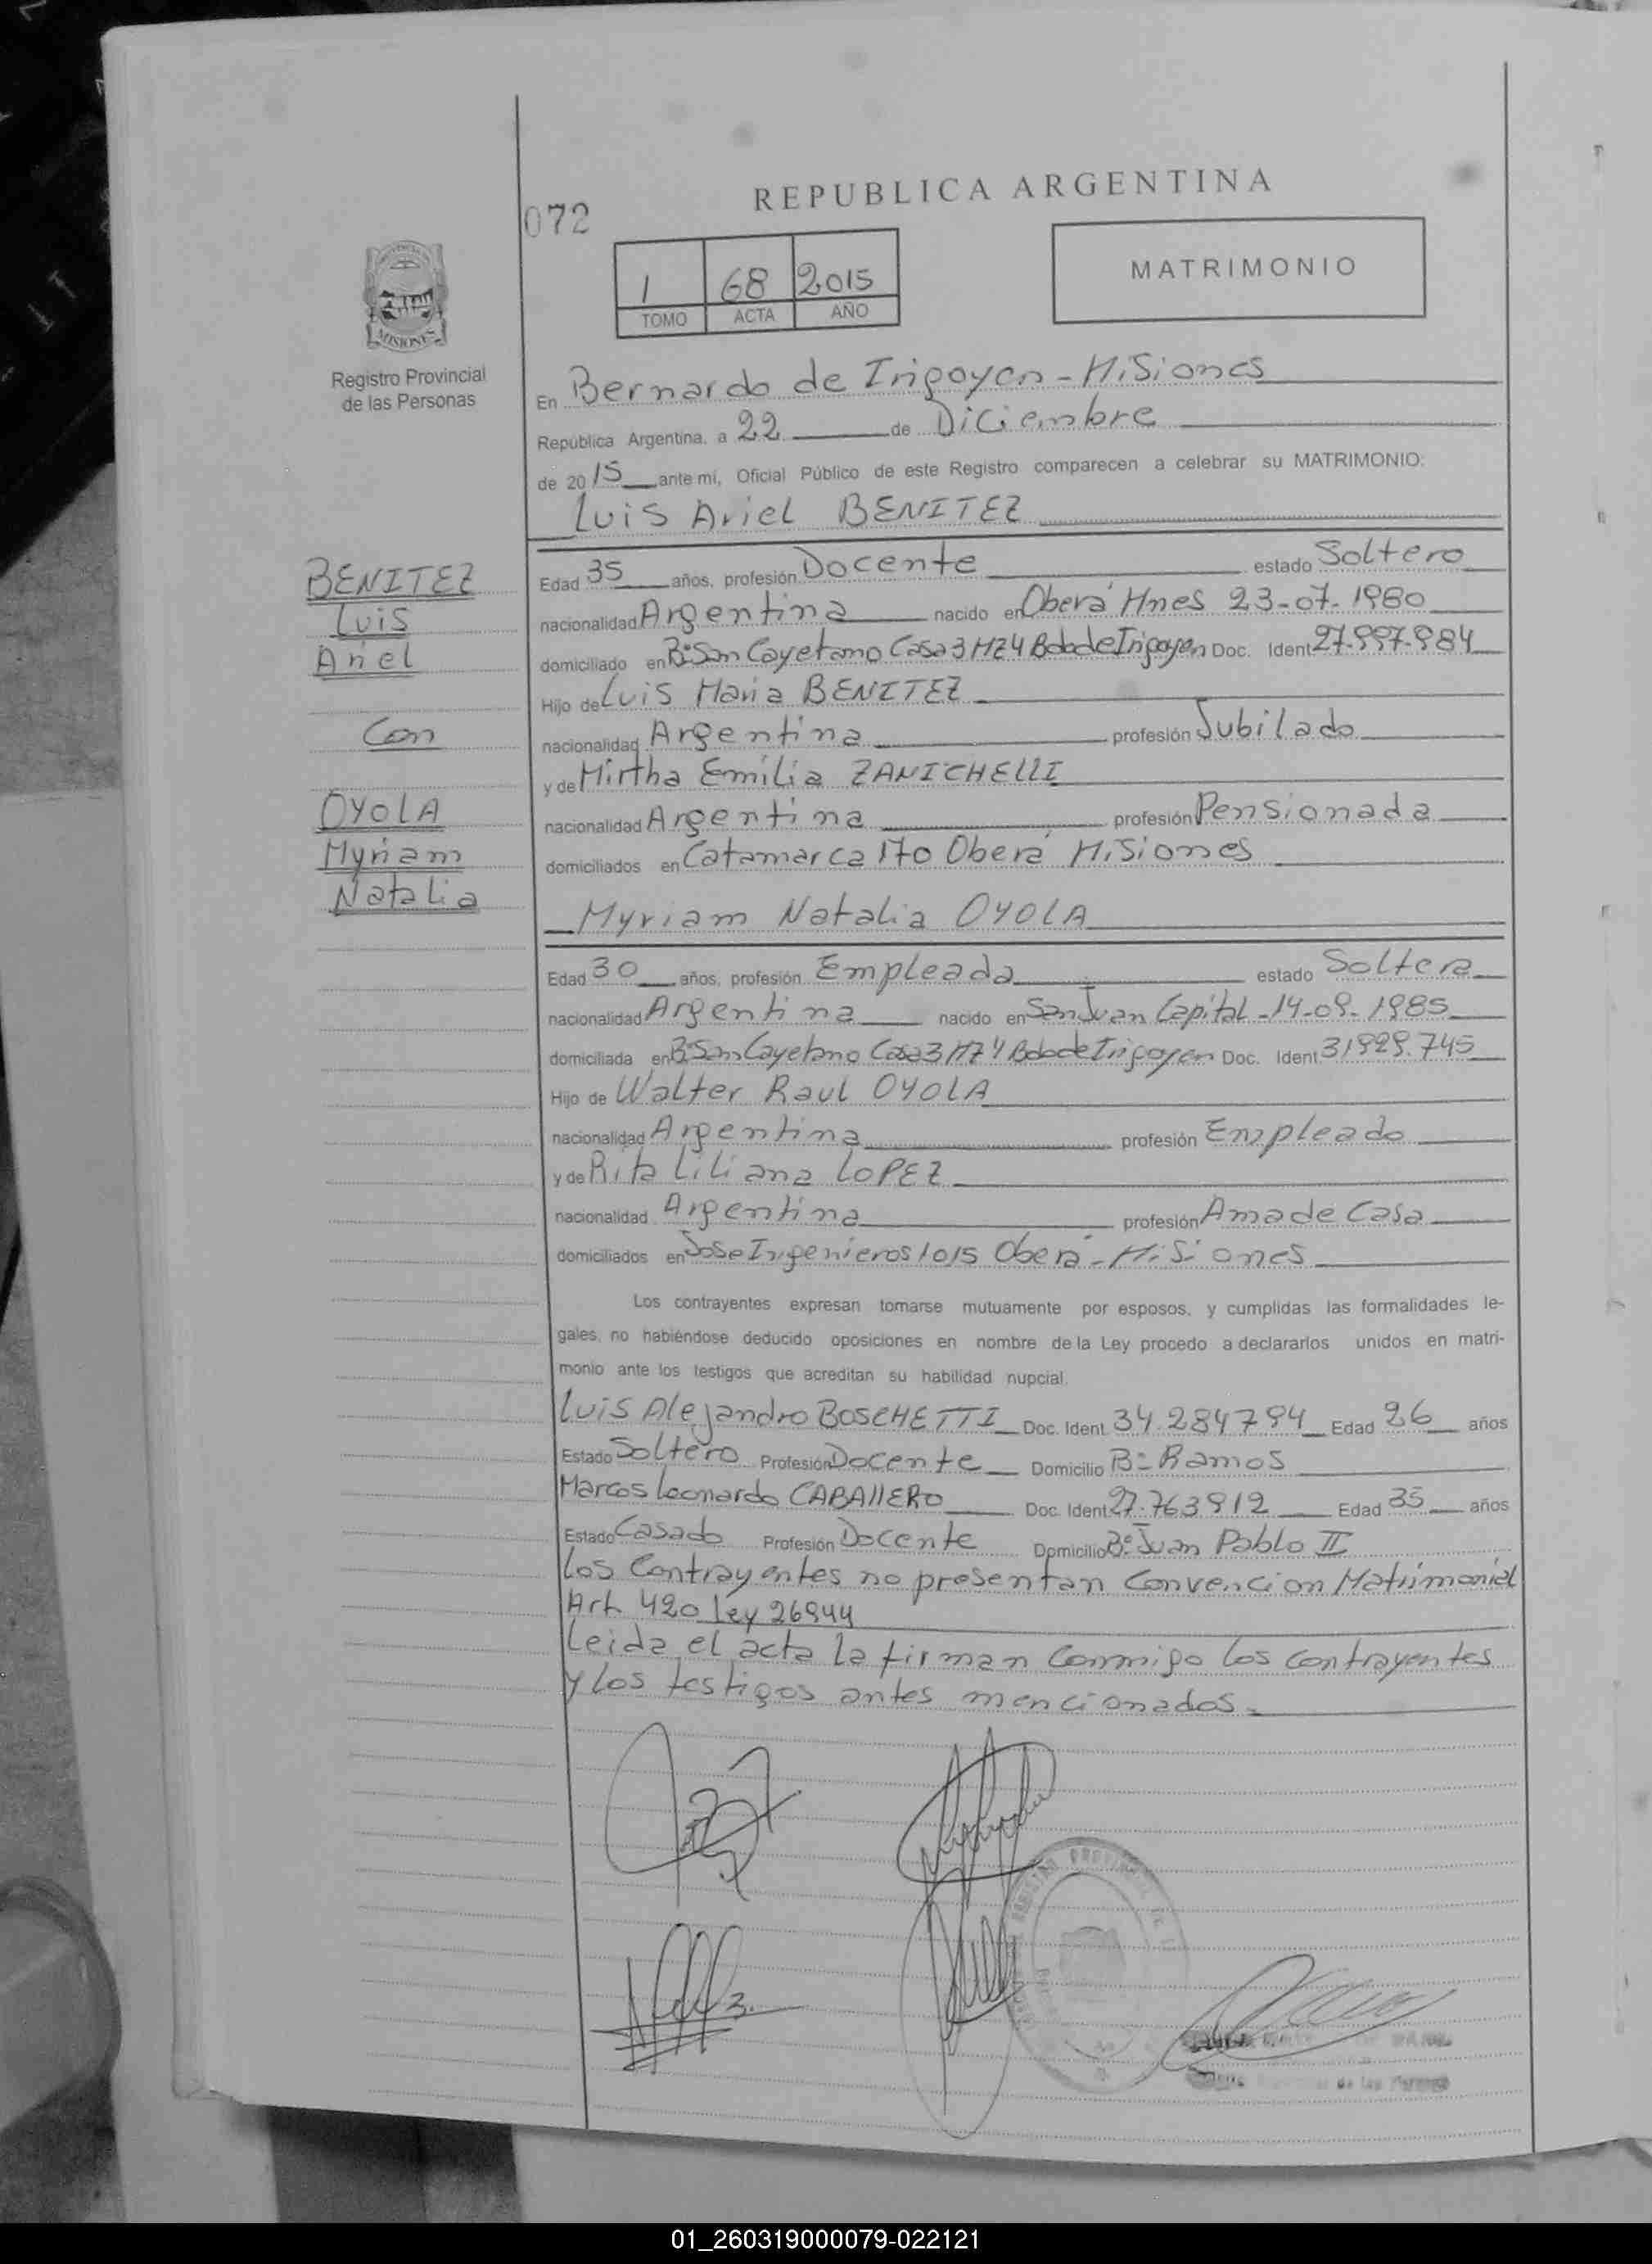 REPUBLICA ARGENTINA
072
MATRIMONIO
1 68 2015
TOMO ACTA AÑO
MISIONES
Registro Provincial
de las Personas
En Bernardo de Irigoyen - Misiones
República Argentina, a 22 de Diciembre
de 2015 ante mi, Oficial Público de este Registro comparecen a celebrar su MATRIMONIO:
Luis Ariel BENITEZ
BENITEZ
Luis
Ariel
Con
OYOLA
Myriam
Natalia
Edad 35 años, profesión Docente estado Soltero
nacionalidad Argentina nacido en Oberá Mnes 23-07-1980
domiciliado en Bº San Cayetano Casa 3 MZ 4 Bdo de Irigoyen Doc. Ident 27.997.984
Hijo de Luis Maria BENITEZ
nacionalidad Argentina profesión Jubilado
y de Mirtha Emilia ZANICHELLI
nacionalidad Argentina profesión Pensionada
domiciliados en Catamarca 170 Oberá Misiones
Myriam Natalia OYOLA
Edad 30 años, profesión Empleada estado Soltera
nacionalidad Argentina nacido en San Juan Capital - 14-09-1985
domiciliada en Bº San Cayetano Casa 3 MZ 4 Bdo de Irigoyen Doc. Ident 31929.745
Hijo de Walter Raul OYOLA
nacionalidad Argentina profesión Empleado
y de Rita Liliana LOPEZ
nacionalidad Argentina profesión Ama de Casa
domiciliados en Jose Ingenieros 1015 Oberá - Misiones
Los contrayentes expresan tomarse mutuamente por esposos, y cumplidas las formalidades le-
gales, no habiéndose deducido oposiciones en nombre de la Ley procedo a declararlos unidos en matri-
monio ante los testigos que acreditan su habilidad nupcial.
Luis Alejandro BOSCHETTI Doc. Ident 34.284794 Edad 26 años
Estado Soltero Profesión Docente Domicilio Bº Ramos
Marcos Leonardo CABALLERO Doc. Ident 27.763912 Edad 35 años
Estado Casado Profesión Docente Domicilio Bº Juan Pablo II
Los Contrayentes no presentan Convencion Matrimonial
Art 420 Ley 26944
Leida el acta la firman Conmigo los contrayentes
y los testigos antes mencionados.
01_260319000079-022121